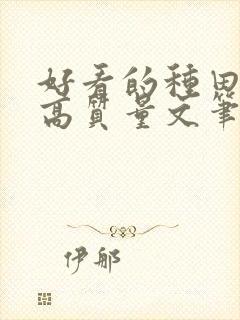 好看的種田
高質量文筆
伊郍